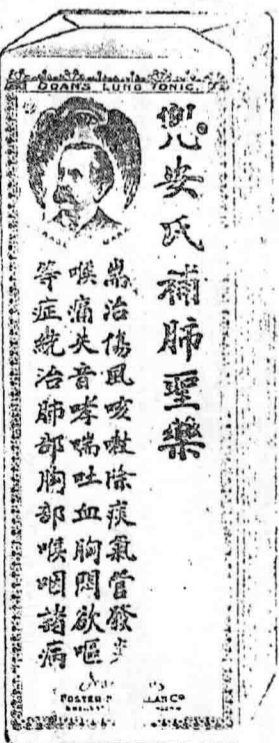 DOAN'S LUNG TONIC.
兜安氏補肺聖藥
專治傷風咳嗽除痰氣管發炎
喉痛失音哮喘吐血胸悶欲嘔
等症統治肺部胸部喉咽諸病
FOSTER
Co